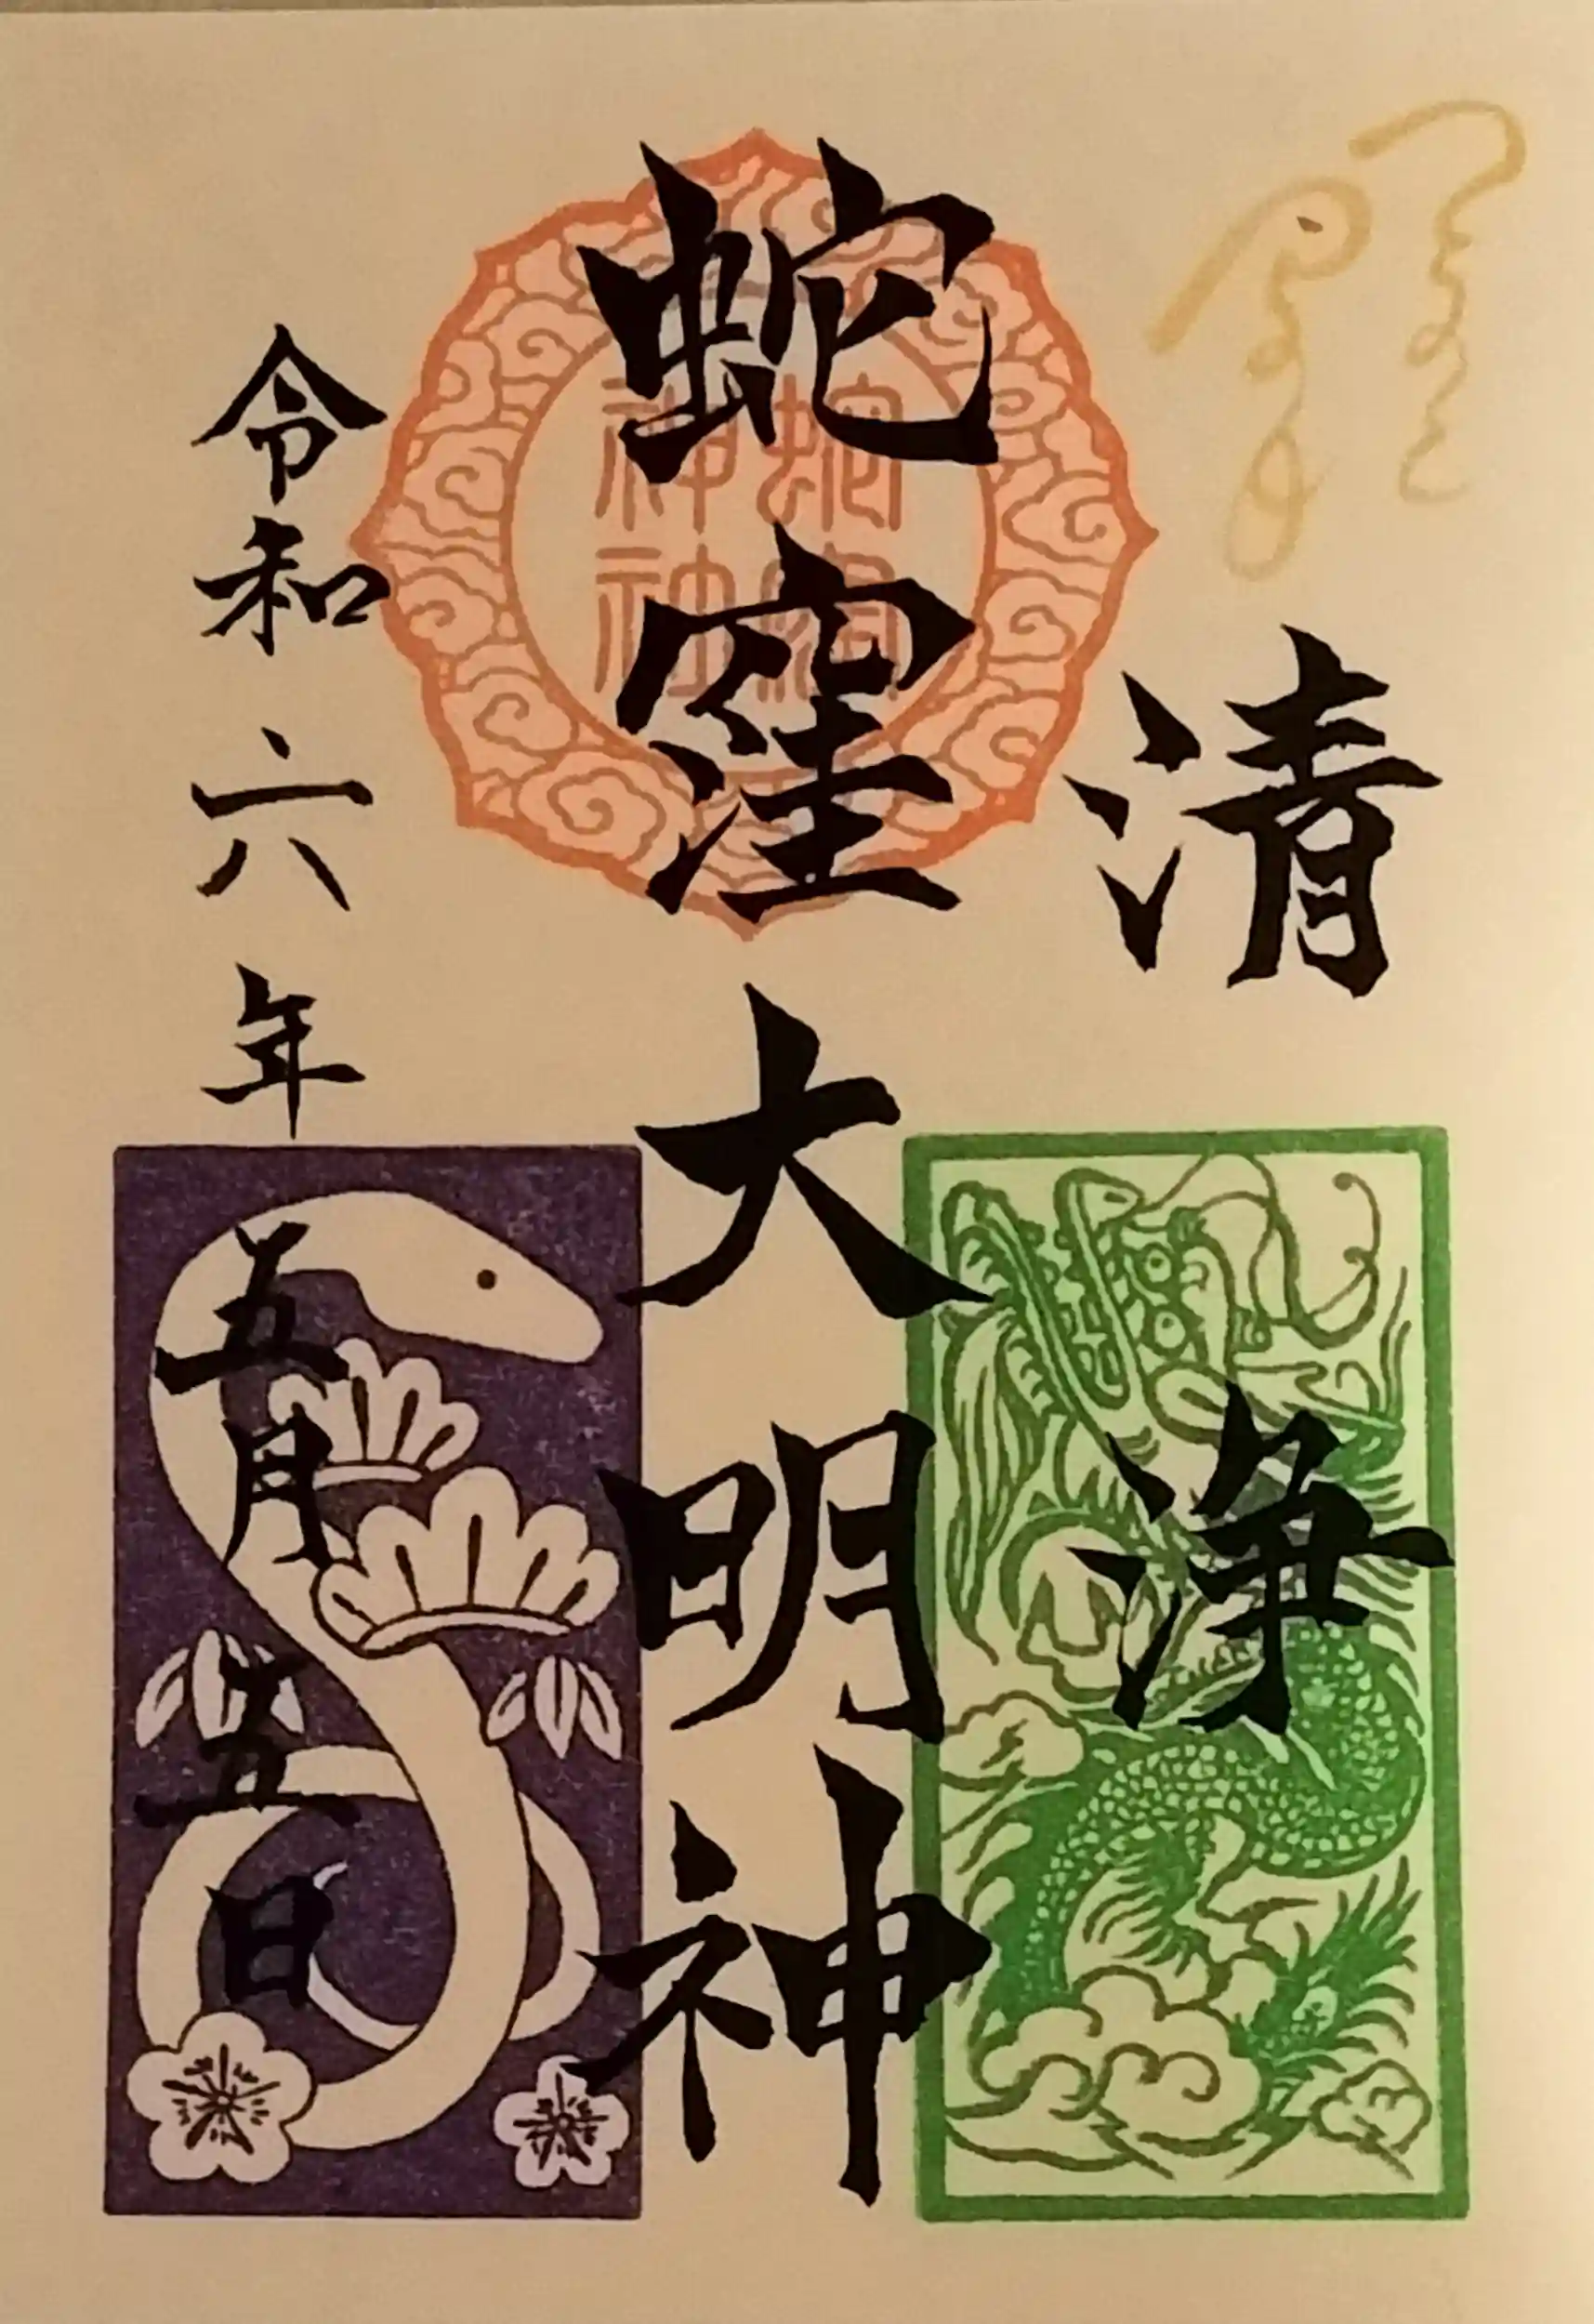 清浄
蛇窪大明神
令和六年五月五日
蛇窪
神社